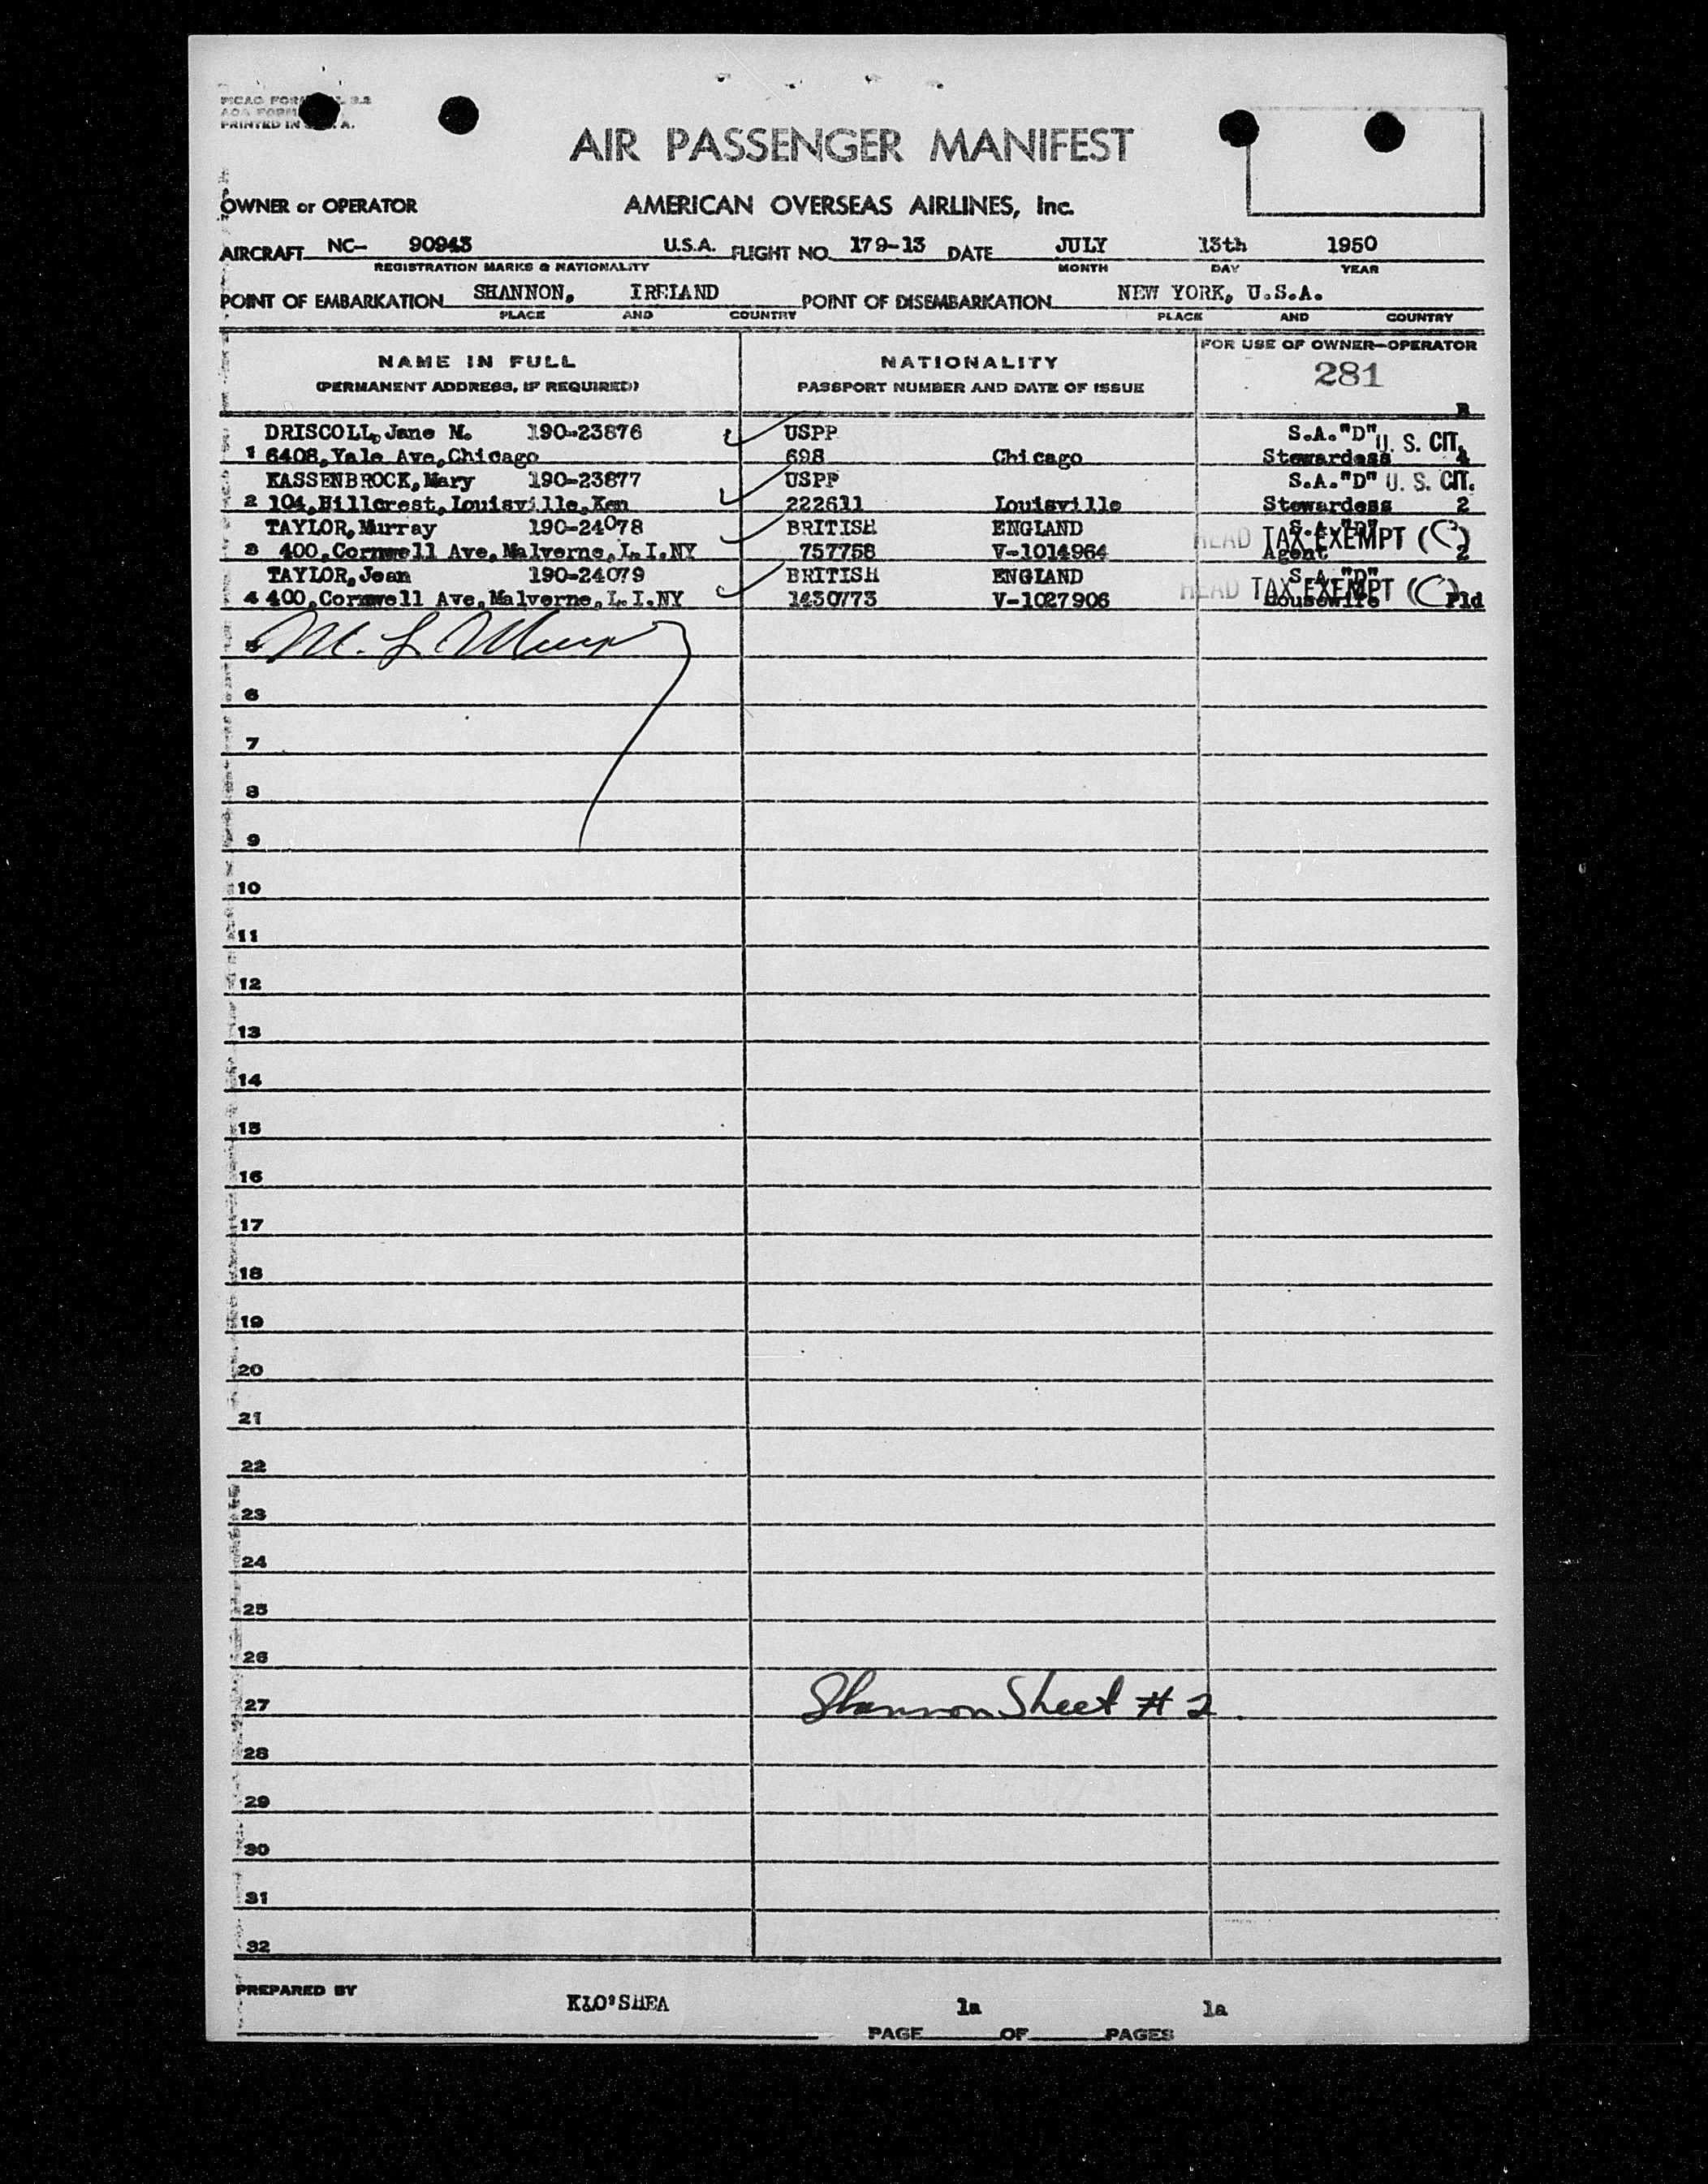 PRINTED IN
AIR PASSENGER MANIFEST
OWNER or OPERATOR AMERICAN OVERSEAS AIRLINES, Inc.
AIRCRAFT NC- 90943 U.S.A. FLIGHT NO. 179-13 DATE JULY 13th 1950
REGISTRATION MARKS & NATIONALITY MONTH DAY YEAR
POINT OF EMBARKATION SHANNON, IRELAND POINT OF DISEMBARKATION NEW YORK, U.S.A.
PLACE AND COUNTRY PLACE AND COUNTRY
NAME IN FULL NATIONALITY FOR USE OF OWNER-OPERATOR
(PERMANENT ADDRESS, IF REQUIRED) PASSPORT NUMBER AND DATE OF ISSUE 281
DRISCOLL, Jane M. 190-23876 USPP S.A."D" U. S. CIT.
1 6408, Yale Ave, Chicago 698 Chicago Stewardess
KASSENBROCK, Mary 190-23877 USPP S.A."D" U. S. CIT.
2 104, Hillcrest, Louisville, Ken 222611 Louisville Stewardess 2
TAYLOR, Murray 190-24078 BRITISH ENGLAND S.A."D" HEAD TAX EXEMPT (C)
3 400, Cornwell Ave, Malverne, L.I.NY 757758 V-1014964 Agent 2
TAYLOR, Jean 190-24079 BRITISH ENGLAND S.A."D" HEAD TAX EXEMPT (C)
4 400, Cornwell Ave, Malverne, L.I.NY 1430773 V-1027906 Housewife Pld
5 M. L.
6
7
8
9
10
11
12
13
14
15
16
17
18
19
20
21
22
23
24
25
26
27 Shannon Sheet # 2
28
29
30
31
32
PREPARED BY K&O'SHEA 1a 1a
PAGE OF PAGES